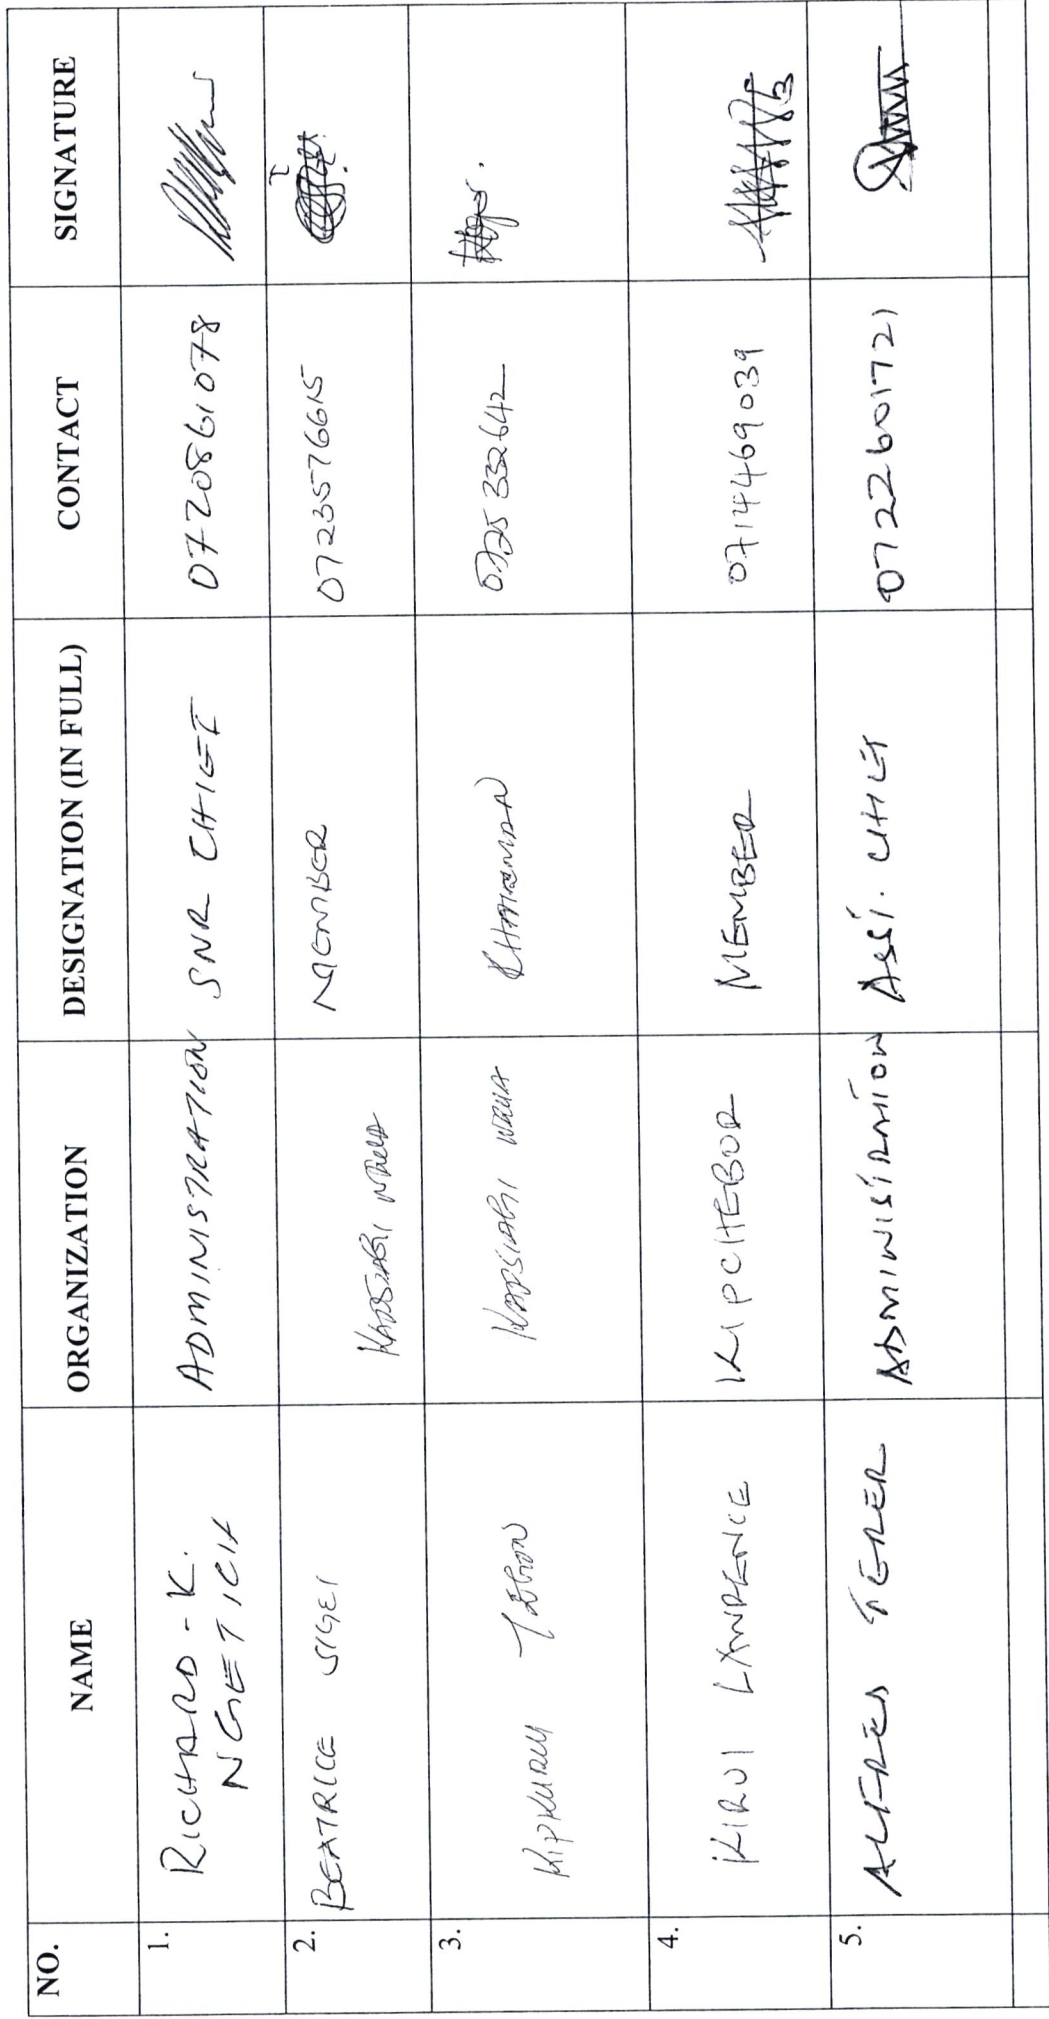 NO. NAME ORGANIZATION DESIGNATION (IN FULL) CONTACT SIGNATURE
1. RICHARD - K. NGETICH ADMINISTRATION SNR CHIEF 0720861078
2. BEATRICE SIGEI KAPSIAGI WRUA MEMBER 0723576615
3. KIPKURUI KAPSIAGI WRUA CHAIRMAN 0725332642
4. KIRUI LAWRENCE KIPCHEBOR MEMBER 0714469039
5. ALFRED TERER ADMINISTRATION ASSI. CHIEF 0722601721